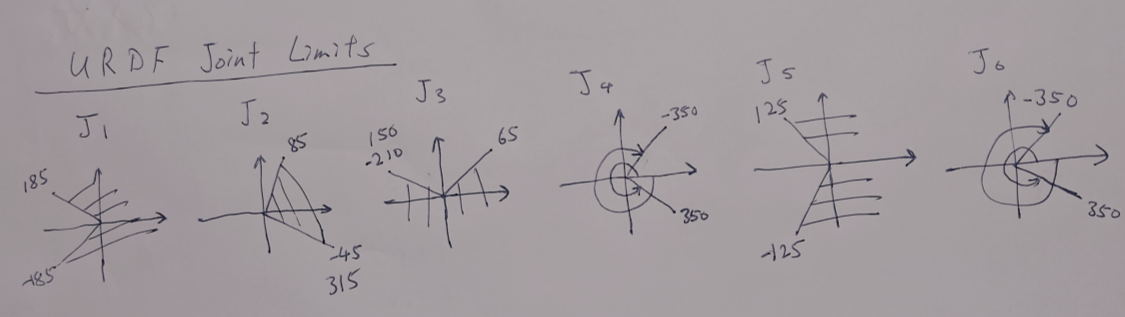 URDF Joint Limits
J1
185
-185
J2
85
-45
315
J3
150
-210
65
J4
-350
350
J5
125
-125
J6
-350
350